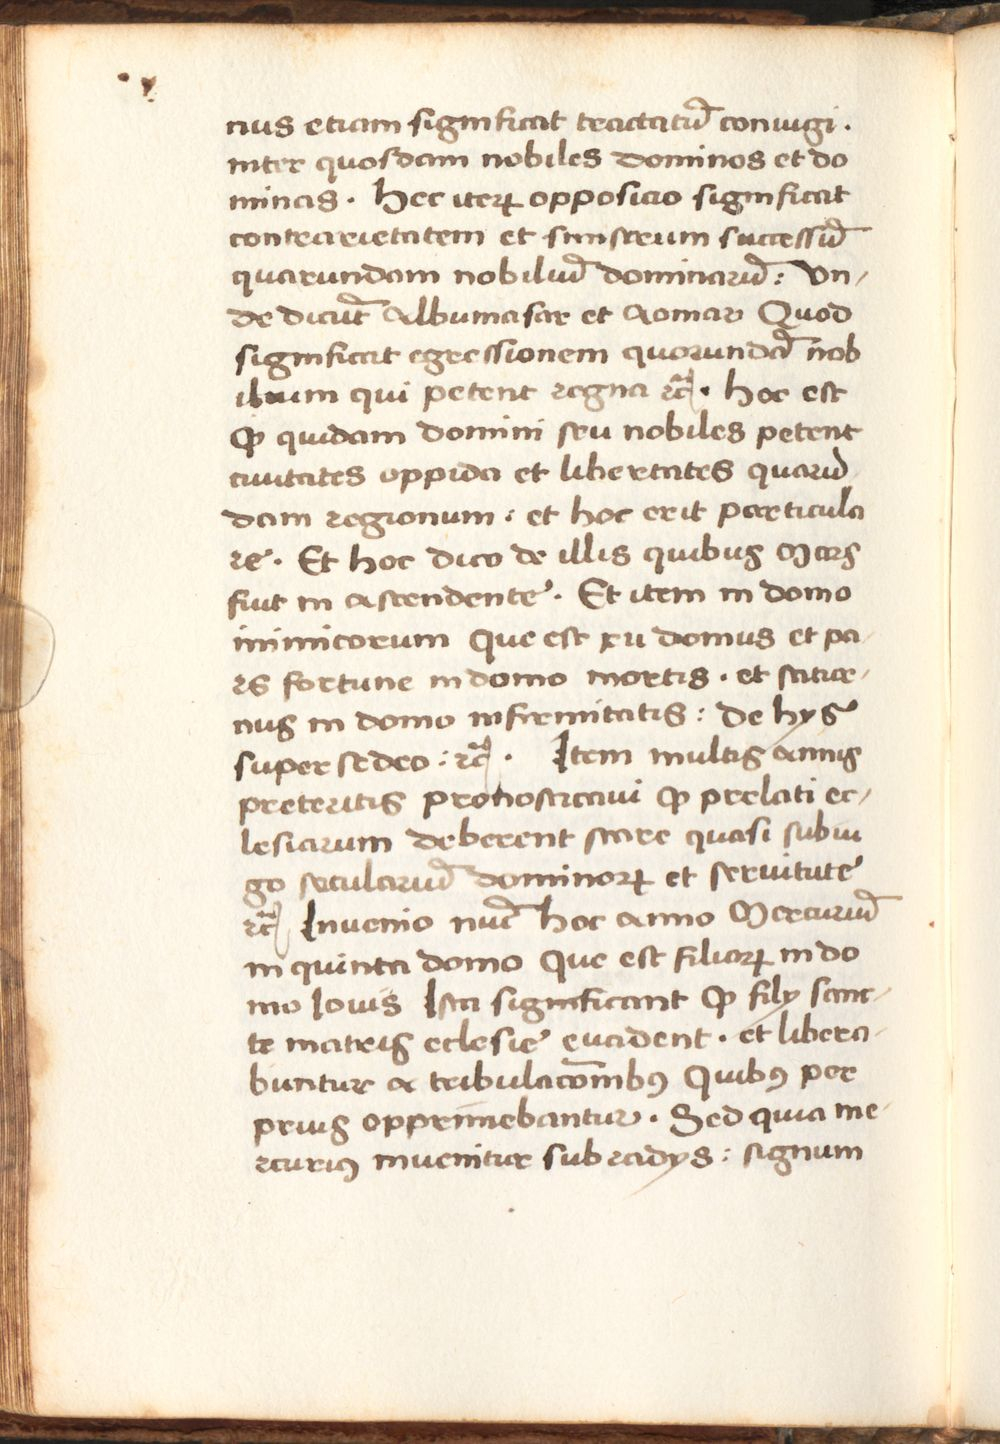 nus etiam significat tractatū coniugi .
inter quosdam nobiles dominos et do
minas . Hec iterꝝ opposicio significat
contrarietatem et sinistrum successū
quarundam nobiliū dominarū : Vn-
de dicūt Albumasar et Aomar Quod
significat egressionem quorundā nob
ilium qui petent regna rc̄ . hoc est
ꝙ quidam domini seu nobiles petent
ciuitates oppida et libertates quarū
dam regionum : et hoc erit particula
re . Et hoc dico de illis quibus Mars
fiut in ascendente . Et item in domo
inimicorum Que est xii domus et pa-
rs fortune in domo mortis . et satur-
nus in domo infirmitatis : de hys
super sedeo : rc̄ . Item multis annis
preteritis pronosticaui ꝙ prelati ec-
lesiarum deberent stare quasi subiu
go seculariū dominorꝝ et seruitute
rc̄ Inuenio nūc hoc anno Mercuriū
in quinta domo Que est filiorꝝ in do
mo Iouis Ista significant ꝙ filÿ sanc-
te matris eclesie euadent . et libera-
buntur a tribulac̄onibꝰ Quibꝰ per
prius opprimebantur . Sed quia me-
rcuriꝰ inuenitur sub radÿs : signum